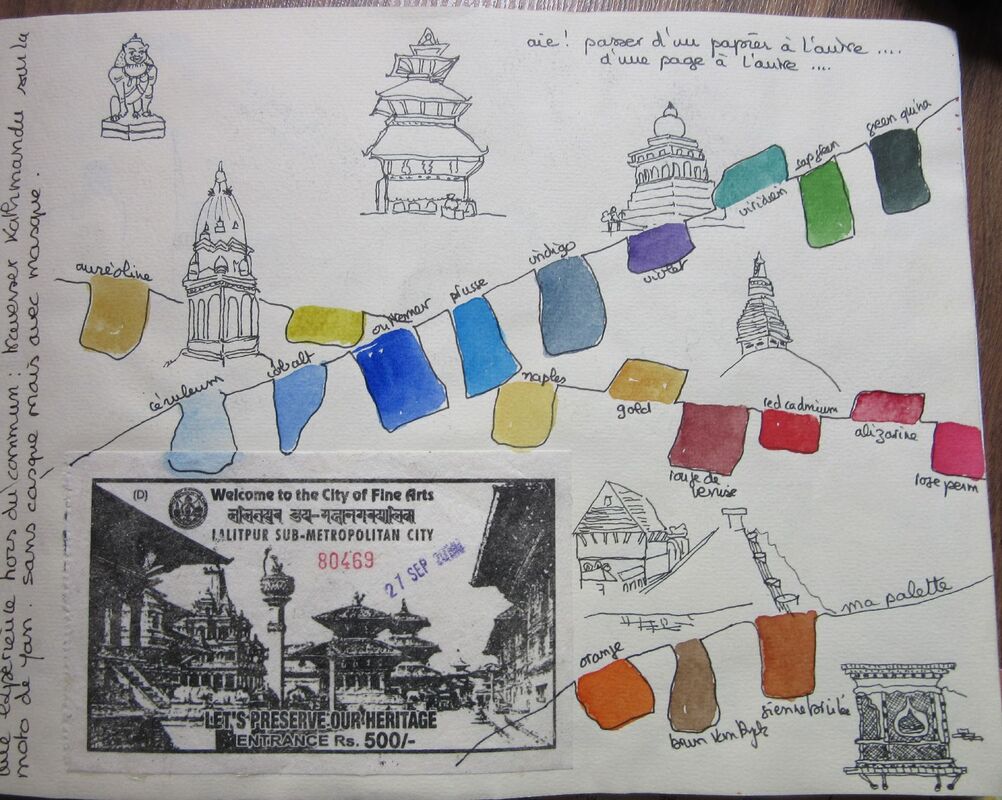 aie! passer d'un papier à l'autre ....
d'une page à l'autre ....
une expérience hors du commun : traverser Kathmandu sur la
moto de Yan. sans casque mais avec masque.
auréoline
céruleum
cobalt
outremer
prusse
indigo
violet
viridian
sap green
green quina
naples
gold
rouge de venise
red cadmium
alizarine
rose perm
(D)
Welcome to the City of Fine Arts
ललितपुर उप-महानगरपालिका
LALITPUR SUB-METROPOLITAN CITY
80469
27 SEP
LET'S PRESERVE OUR HERITAGE
ENTRANCE Rs. 500/-
ma palette
orange
brun Van Dyck
sienne brûlée